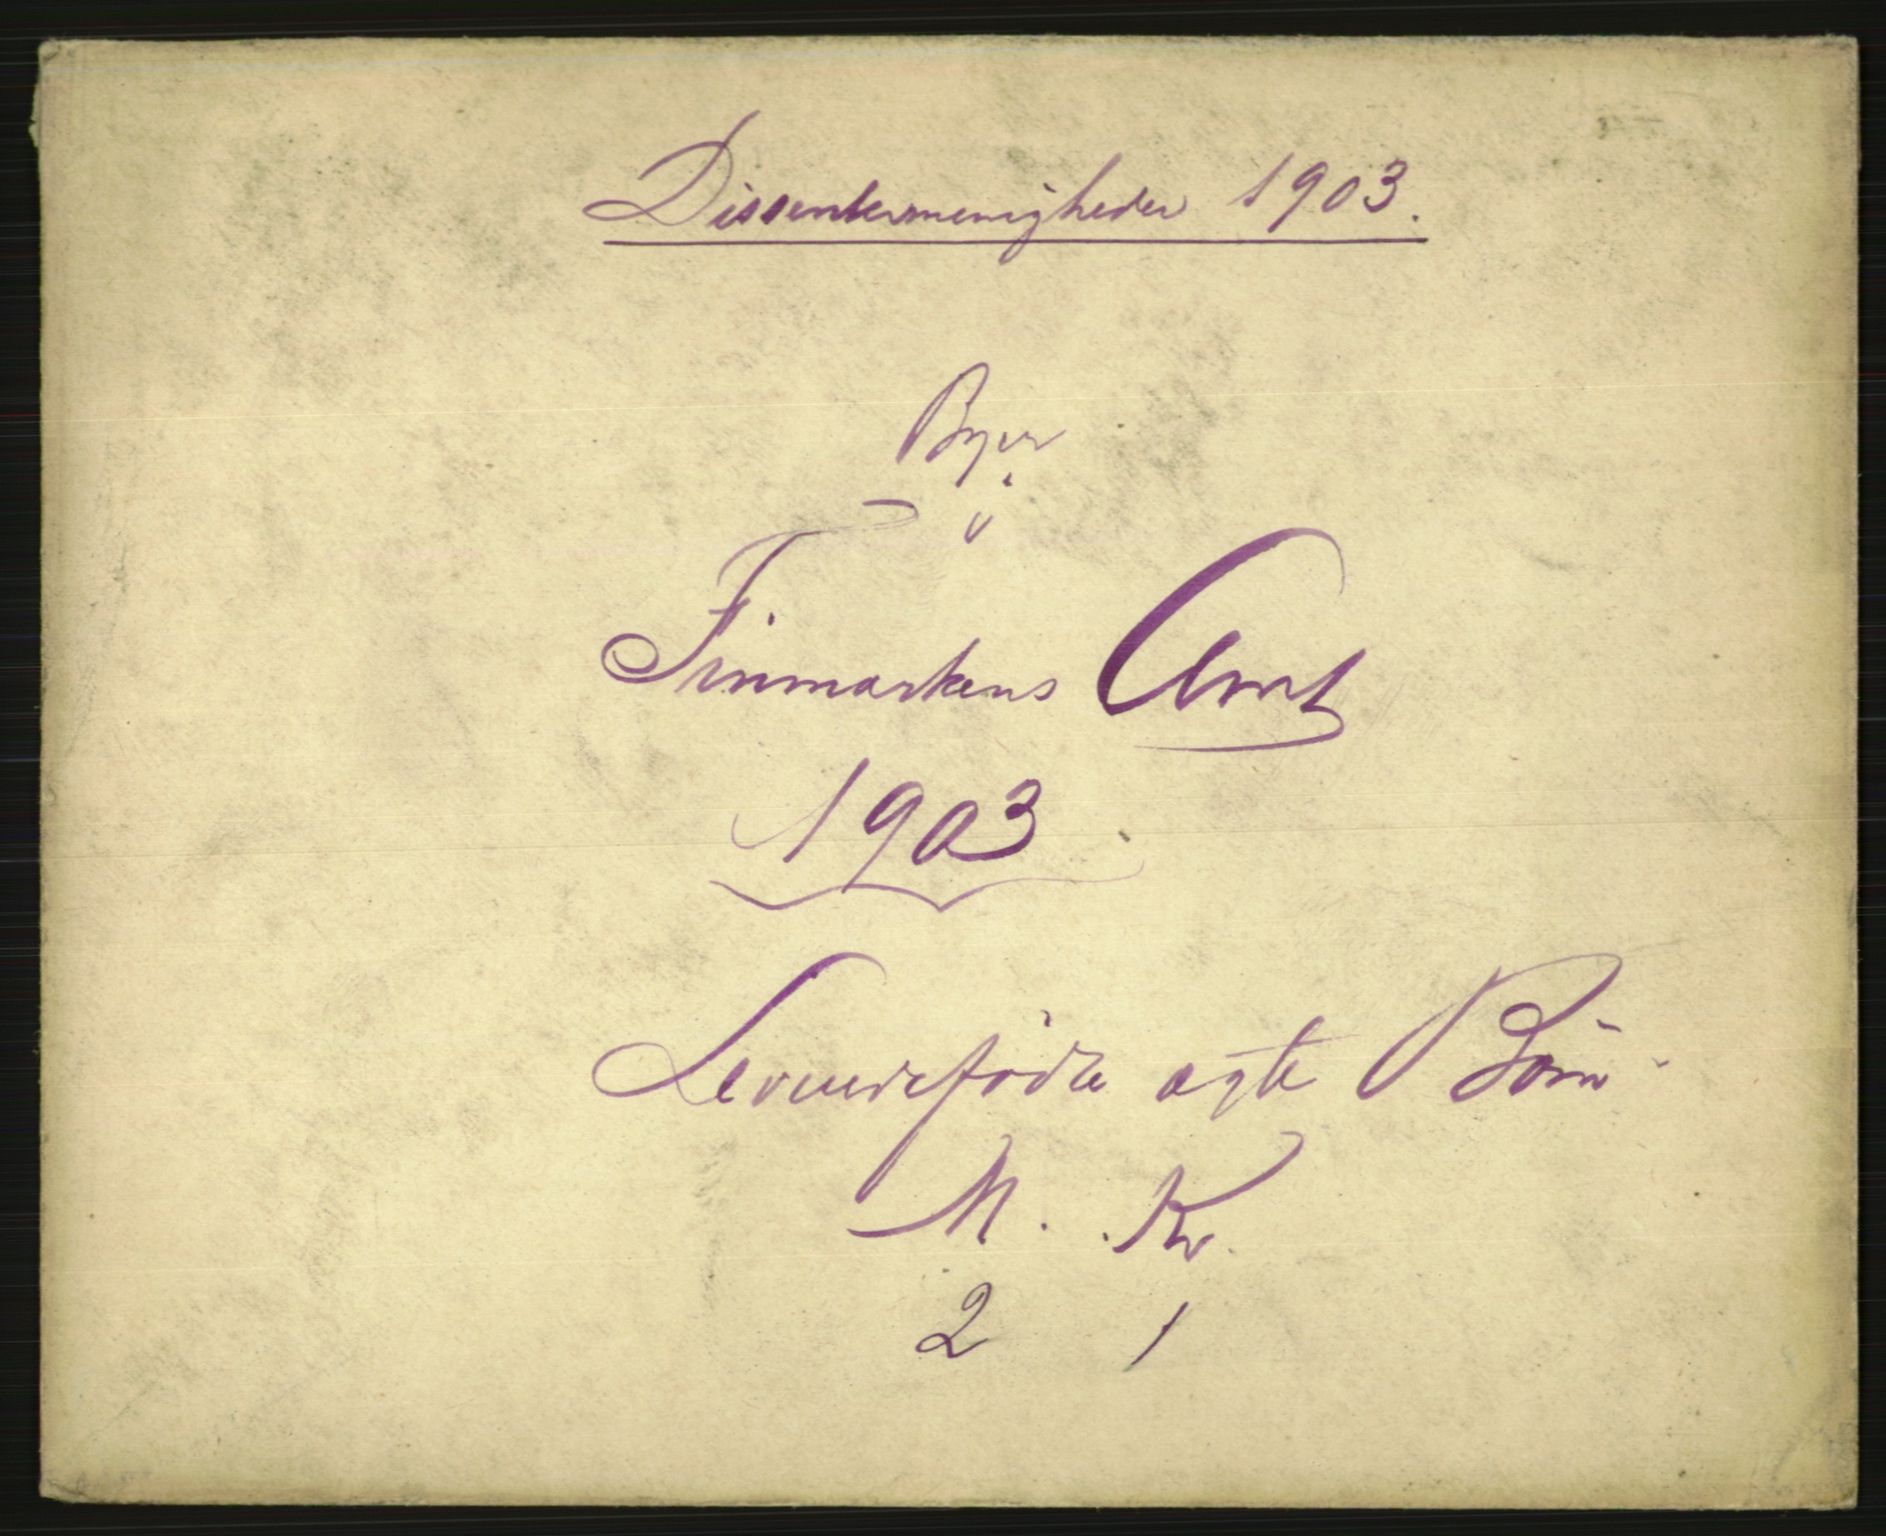 Dissentermenigheder 1903.
Byer
i
Finmarkens Amt
1903
Levendefødte ægte Børn
M. Kv.
2 1